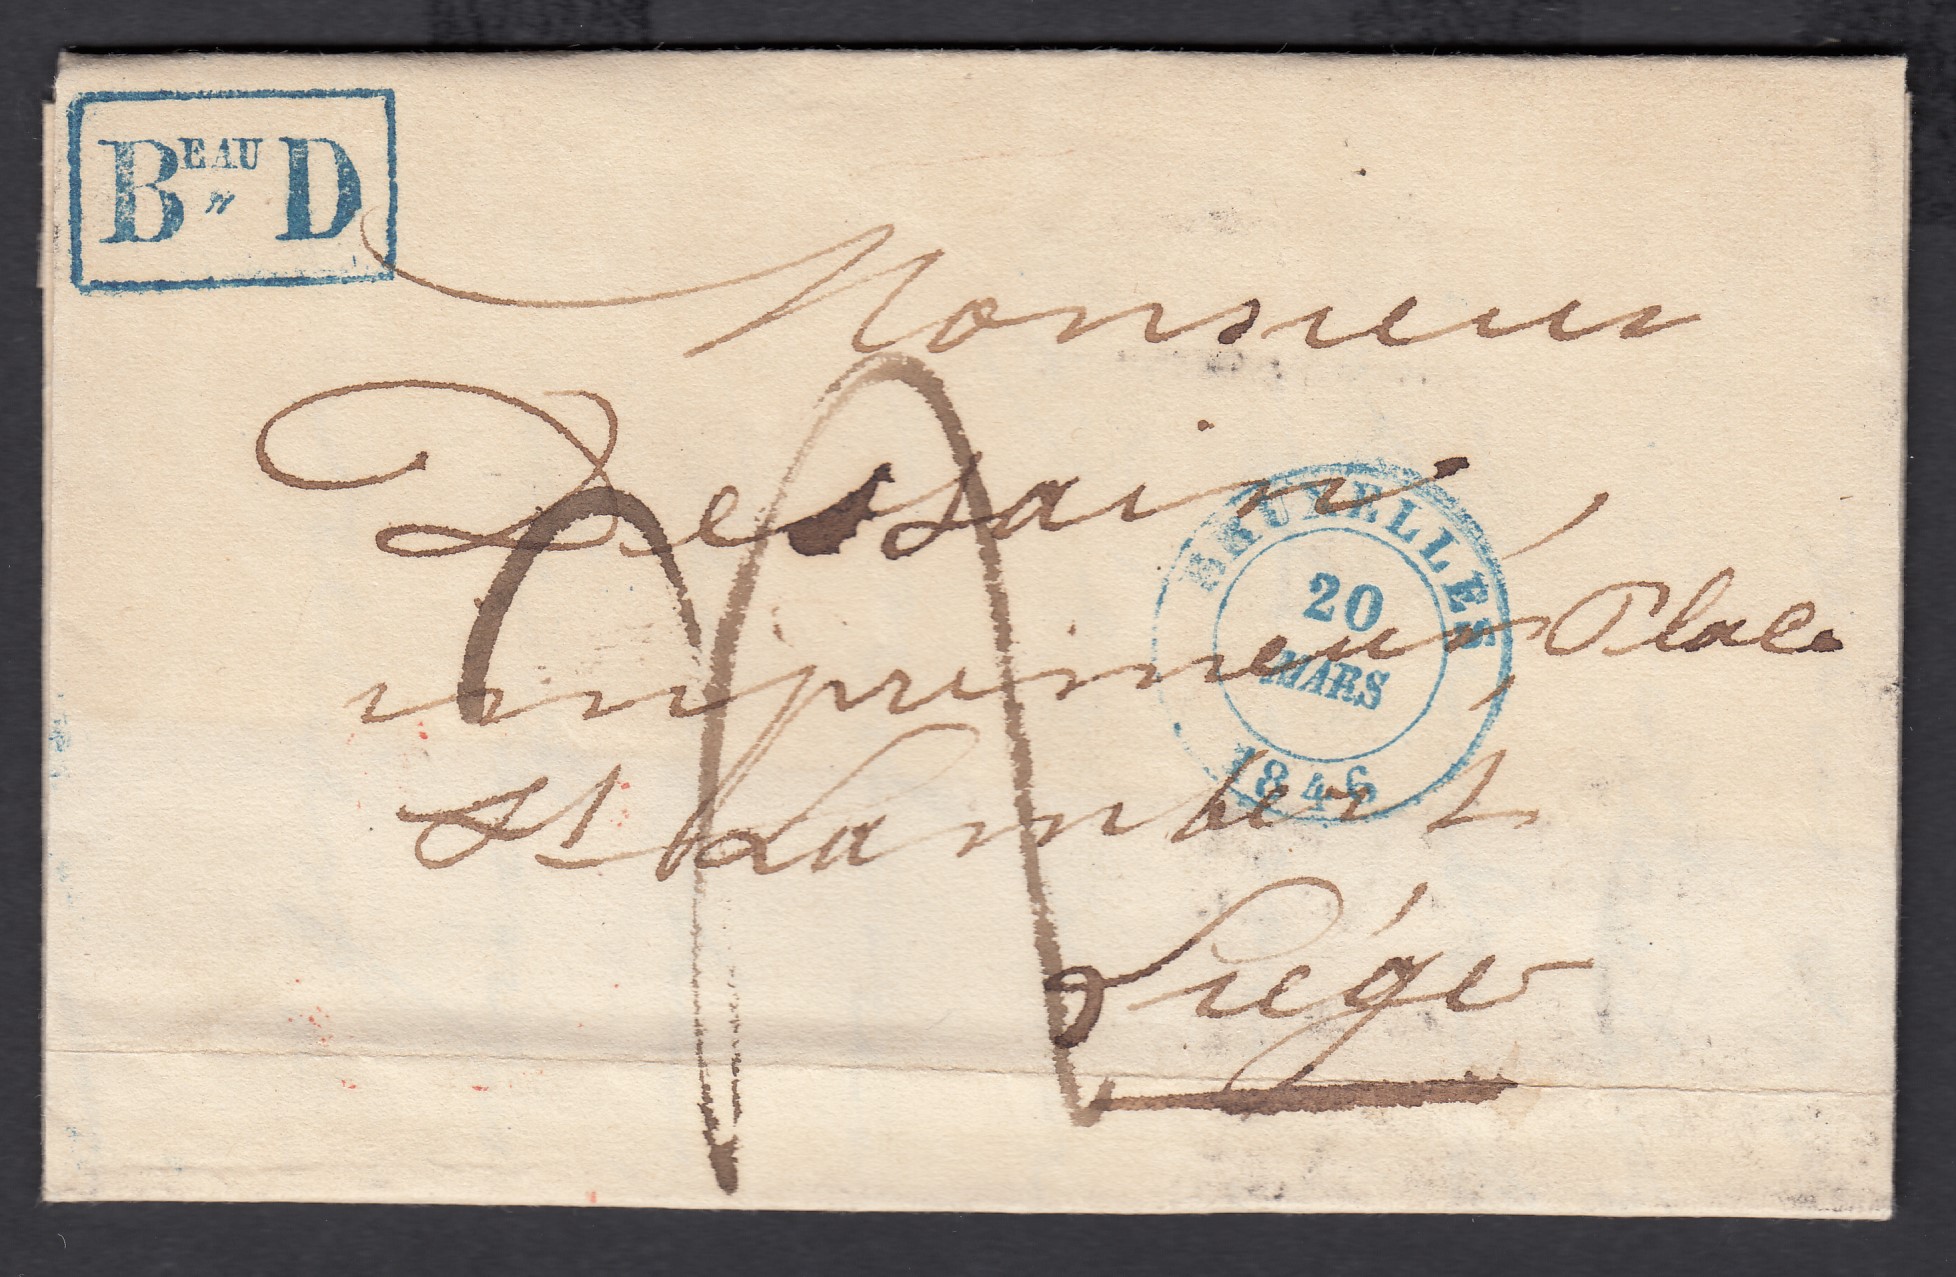 BEAU " D
Monsieur
Dessain,
imprimeur, Place
St Lambert
Liége
BRUXELLES
20
MARS
1846